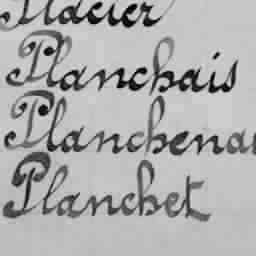 Placier
Planchais
Planchenau
Planchet